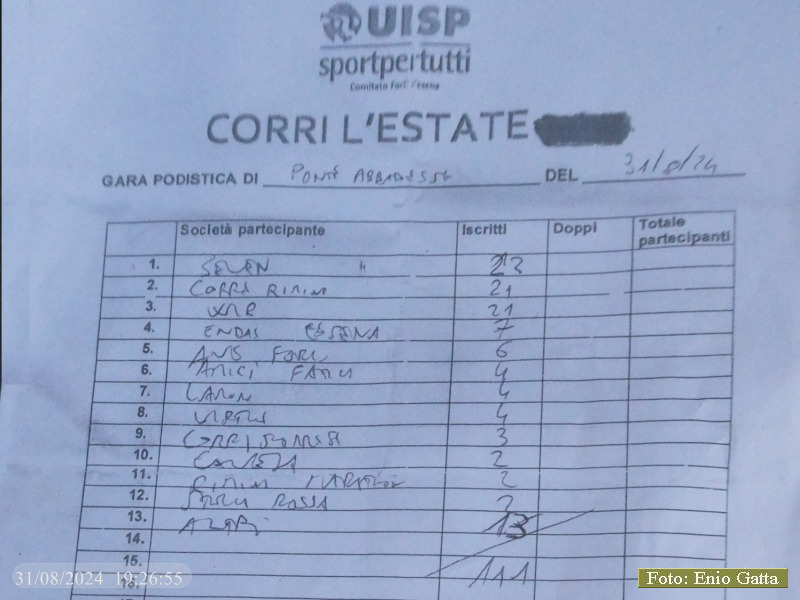 UISP
sportpertutti
Comitato Forlì Cesena
CORRI L'ESTATE
GARA PODISTICA DI PONTE ABBADESSE DEL 31/8/24
Società partecipante Iscritti Doppi Totale partecipanti
1. SEVEN 23
2. CORRI RIMINI 21
3. 21
4. ENDAS CESENA 7
5. AVIS FORLI 6
6. AMICI 4
7. 4
8. VIRTUS 4
9. 3
10. 2
11. RIMINI MARATHON 2
12. ROSSA
13. 13
14.
15. 111
16.
31/08/2024 19:26:55
Foto: Enio Gatta